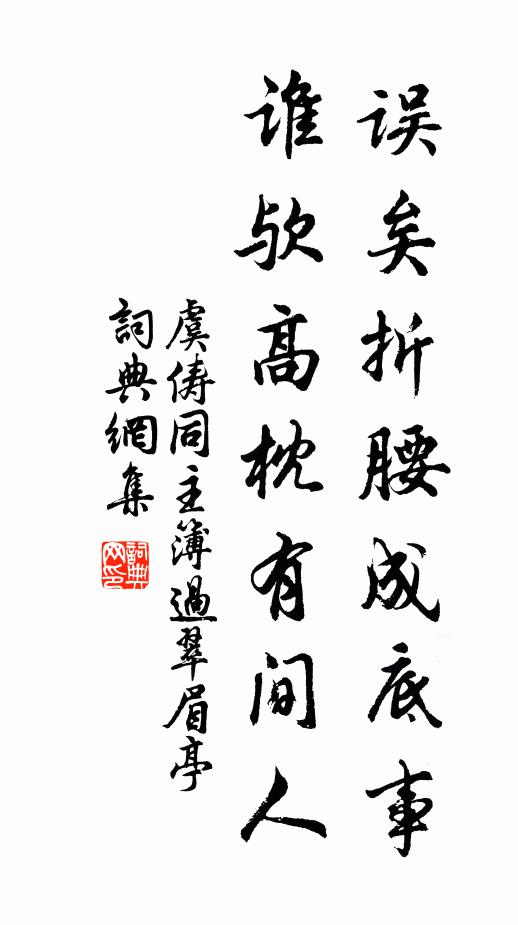 误矣折腰成底事
谁欤高枕有间人
虞俦同主簿過翠眉亭
詞典網集
詞典
网印